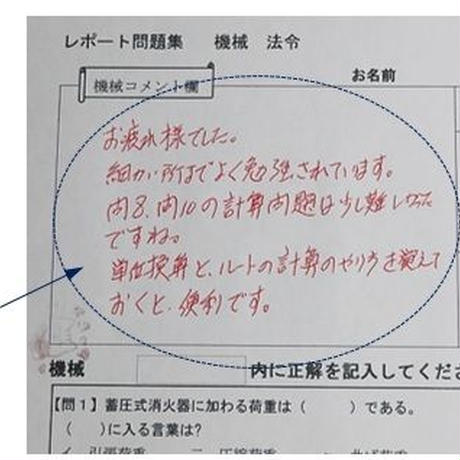 レポート問題集　機械　法令
お名前
機械コメント欄
お疲れ様でした。
細かい所までよく勉強されています。
問8、問10の計算問題は少し難しかった
ですね。
単位換算と、ルートの計算のやり方を覚えて
おくと、便利です。
機械
内に正解を記入してくださ
【問1】蓄圧式消火器に加わる荷重は（　　）である。
（　　）に入る言葉は?